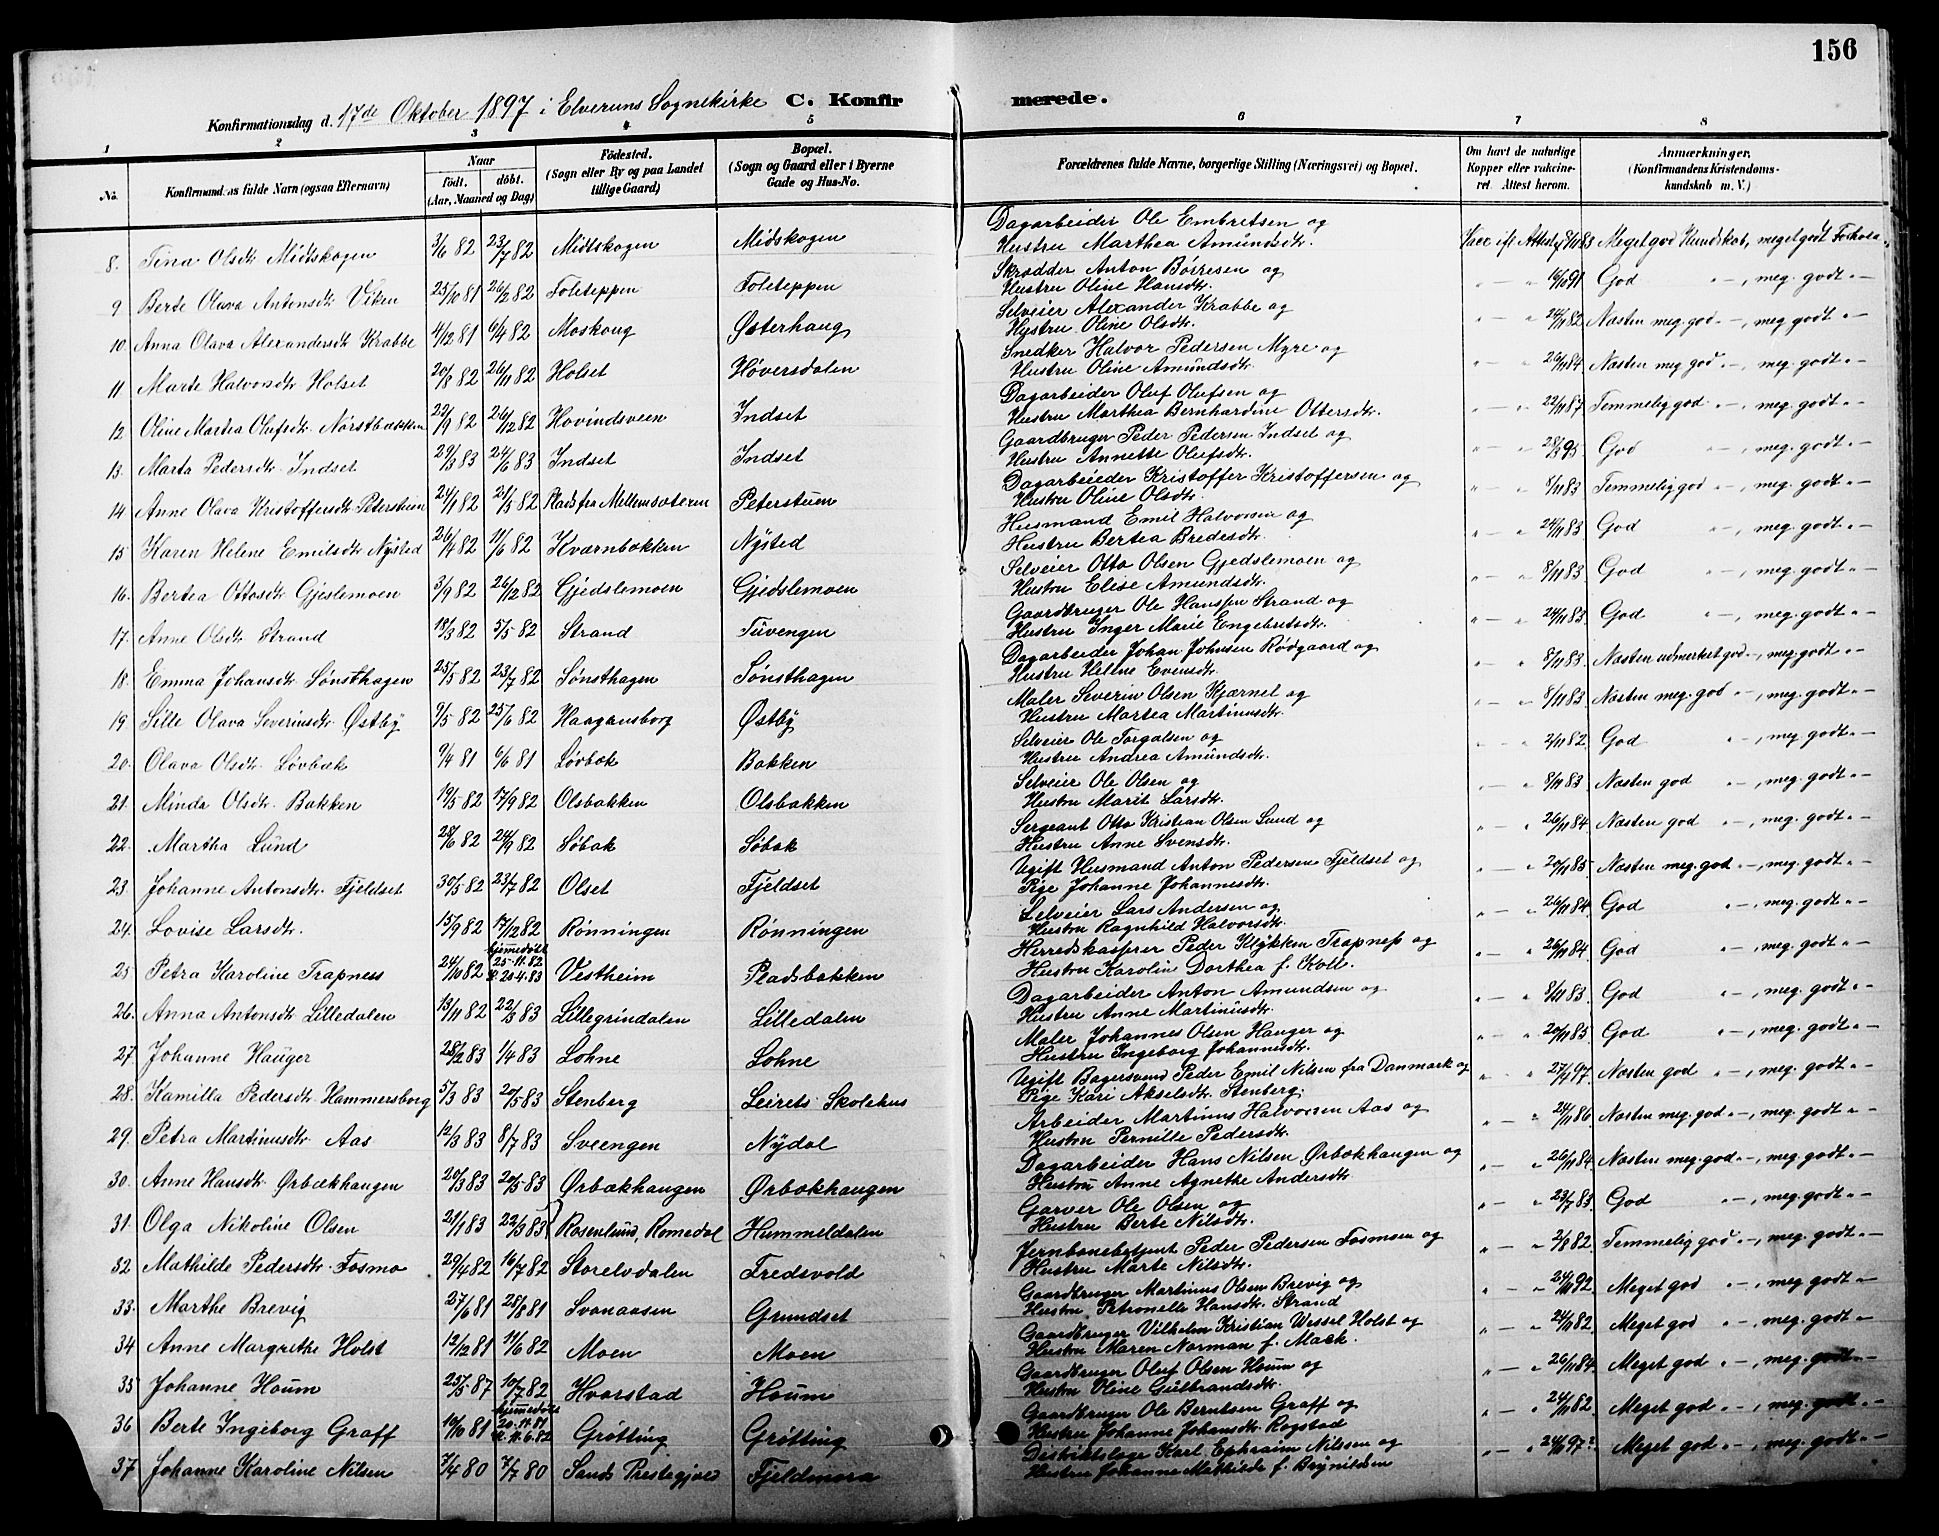 156
Konfirmationsdag d. 17de Oktober 1897 i Elverums Sognekirke C. Konfirmerede.
1 2 3 4 5 6 7 8
No. Konfirmandens fulde Navn (ogsaa Efternavn) Naar født, døbt. (Aar, Maaned og Dag) Fødested. (Sogn eller By og paa Landet tillige Gaard) Bopæl. (Sogn og Gaard eller i Byerne Gade og Hus-No. Forældrenes fulde Navne, borgerlige Stilling (Næringsvei) og Bopæl. Om havt de naturlige Kopper eller vakcineret. Attest herom. Anmærkninger, (Konfirmandens Kristendomskundskab m. V.)
8. Tina Olsdtr. Midtskogen 3/6 82 23/7 82 Midtskogen Midskogen Dagarbeider Ole Embretsen og Hustru Marthea Amundsdtr. Vacc. ifl. Attest 8/11 83 Meget god Kundskab, meget godt Forhold
9 Berte Olava Antonsdtr. Viken 25/10 81 26/2 82 Foleteppen Foleteppen Skrædder Anton Børresen og Hustru Oline Hansdtr. " — " 16/10 91 God " —, meg. godt " —
10. Anna Olava Alexandersdtr. Krabbe 4/12 81 6/4 82 Moskoug Østerhaug Selveier Alexander Krabbe og Hustru Oline Olsdtr. " — " 24/11 82 Næsten meg. god " —, meg. godt " —
11 Marte Halvorsdtr. Holset 20/8 82 26/11 82 Holset Høversdalen Snedker Halvor Pedersen Myre og Hustru Oline Amundsdtr. " — " 26/11 84 Næsten meg god " —, meg. godt " —
12 Oline Martea Olufsdtr. Nørstbækken 22/9 82 26/12 82 Hovindsveen Indset Dagarbeider Oluf Olufsen og Hustru Marthea Bernhardine Ottersdtr. " — " 22/11 87 Temmelig god " —, meg. godt " —
13. Marta Pedersdtr. Indset 29/3 83 24/6 83 Indset Indset Gaardbruger Peder Pedersen Indset og Hustru Annette Olufsdtr. " — " 28/9 95 God " —, meg. godt " —
14 Anne Olava Kristoffersdtr. Peterstuen 24/1 82 21/5 82 Plads fra Mellemsæteren Peterstuen Dagarbeider Kristoffer Kristoffersen og Hustru Oline Olsdtr. " — " 8/11 83 Temmelig god " —, meg. godt " —
15 Karen Helene Emilsdtr. Nysted 26/4 82 11/6 82 Kværnbækken Nysted Husmand Emil Halvorsen og Hustru Bertea Bredesdtr. " — " 24/11 83 God " —, meg. godt " —
16. Bertea Ottosdtr. Gjeslemoen 3/9 82 26/12 82 Gjedslemoen Gjedslemoen Selveier Otto Olsen Gjedslemoen og Hustru Elise Amundsdtr. " — " 8/11 83 God " —, meg. godt " —
17. Anne Olsdtr. Strand 18/3 82 5/5 82 Strand Tuvengen Gaardbruger Ole Hanssen Strand og Hustru Inger Marie Engebretsdtr. " — " 24/11 83 God " —, meg. godt " —
18. Emma Johansdtr. Sønsthagen 25/5 82 23/7 82 Sønsthagen Sønsthagen Dagarbeider Johan Johnsen Rødgaard og Hustru Helene Evensdtr. " — " 8/11 83. Næsten udmerket god " —, meg. godt " —
19. Sille Olava Severinsdtr. Østby 9/5 82 25/6 82 Haagansborg Østby Maler Severin Olsen Kjærnet og Hustru Martea Martinusdtr. " — " 8/11 83. Næsten meg. god " —, meg. godt " —
20. Olava Olsdtr. Løvbæk 9/4 81 6/6 81 Løvbæk Bakken Selveier Ole Torgalsen og Hustru Andrea Amundsdtr. " — " 2/11 82 God " —, meg godt " —
21. Minda Olsdtr. Bakken 19/5 82 17/9 82 Olsbakken Olsbakken Selveier Ole Olsen og Hustru Marit Larsdtr. " — " 8/11 83. Næsten god " —, meg. godt " —
22. Martha Lund 28/6 82 24/9 82 Søbak Søbak Sergeant Otto Kristian Olsen Lund og Hustru Anne Svensdtr. " — " 26/11 84. Næsten god " —, meg. godt " —
23. Johanne Antonsdtr. Fjeldset 30/5 82 23/7 82 Olset Fjeldset Ugift Husmand Anton Pedersen Fjeldset og Pige Johanne Johannesdtr. " — " 20/11 85 Næsten meg. god " —, meg. godt " —
24. Lovise Larsdtr. 15/9 82 17/12 82 Rønningen Rønningen Selveier Lars Andersen og Hustru Ragnhild Halvorsdtr. " — " 26/11 84. God " —, meg. godt " —
25 Petra Karoline Trapness 24/10 82 hjemmedøbt 25-11.82 20.4.83 Vestheim Pladsbakken Herredskasserer Peder Klykken Trapness og Hustru Karoline Dorthea f. Koll. " — " 26/11 84 God " —, meg. godt " —
26. Anna Antonsdtr. Lilledalen 13/11 82 22/3 83 Lillegrindalen Lilledalen Dagarbeider Anton Amundsen og Hustru Anne Martinusdtr. " — " 8/11 83. God " —, meg. godt " —
27. Johanne Hauger 28/2 83 1/4 83 Lohne Lohne Maler Johannes Olsen Hauger og Hustru Ingeborg Johannesdtr. " — " 20/11 85. God " —, meg. godt " —
28. Kamilla Pedersdtr. Hammersborg 5/3 83 20/5 83 Stenberg Leirets Skolehus Ugift Bagersvend Peder Emil Nilsen fra Danmark og Pige Kari Akselsdtr. Stenberg. " — " 27/4 97. Næsten god " —, meg. godt " —
29. Petra Martinusdtr. Aas 12/3 83 8/7 83 Sveengen Nydal Arbeider Martinus Halvorsen Aas og Hustru Pernille Pedersdtr. " — " 24/11 86 Næsten meg. god " —, meg. godt " —
30. Anne Hansdtr. Ørbækhaugen 20/3 83 20/5 83 Ørbækhaugen Ørbækhaugen Dagarbeider Hans Nilsen Ørbækhaugen og Hustru Anne Agnethe Andersdtr. " — " 26/11 84 Næsten meg. god " —, meg. godt " —
31. Olga Nikoline Olsen 21/1 83 22/3 83 Rosenlund, Romedal Hummeldalen Garver Ole Olsen og Hustru Berte Nilsdtr. " — " 23/7 83 God " —, meg. godt " —
32. Mathilde Pedersdtr. Fosmo 29/4 82 16/7 82 Storelvdalen Fredsvold Jernbanebetjent Peder Pedersen Fosmoen og Hustru Marte Nilsdtr. " — " 2/8 82 Temmelig god " —, meg. godt " —
33. Marthe Brevig 27/6 81 28/8 81 Svanaasen Grundset Gaardbruger Martinus Olsen Brevig og Hustru Petronelle Hansdtr. Strand " — " 24/11 92 Meget god " —, meg. godt " —
34 Anne Margrethe Holst 12/12 81 11/6 82 Moen Moen Gaardbruger Vilhelm Kristian Wessel Holst og Hustru Maren Norman f. Mack. " — " 24/11 82. Meget god " —, meg. godt " —
35 Johanne Houm 25/5 87 10/7 82 Hvarstad Houm Gaardbruger Oluf Olsen Houm og Hustru Oline Gulbrandsdtr. " — " 26/11 84 Meget god " —, meg. godt " —
36 Berte Ingeborg Graff 10/10 81 hjemmedøbt 20.11.81 11.6.82 Grøtting Grøtting Gaardbruger Ole Berntsen Graff og Hustru Johanne Johansdtr. Rogstad " — " 24/11 82 Meget god " —, meg. godt " —
37 Johanne Karoline Nilsen 7/4 80 7/7 80 Sands Prestegjæld Fjeldmora Distriktslæge Karl Ephraim Nilsen og Hustru Johanne Mathilde f. Brynildsen " — " 24/11 97 Meget god " —, meg. godt " —